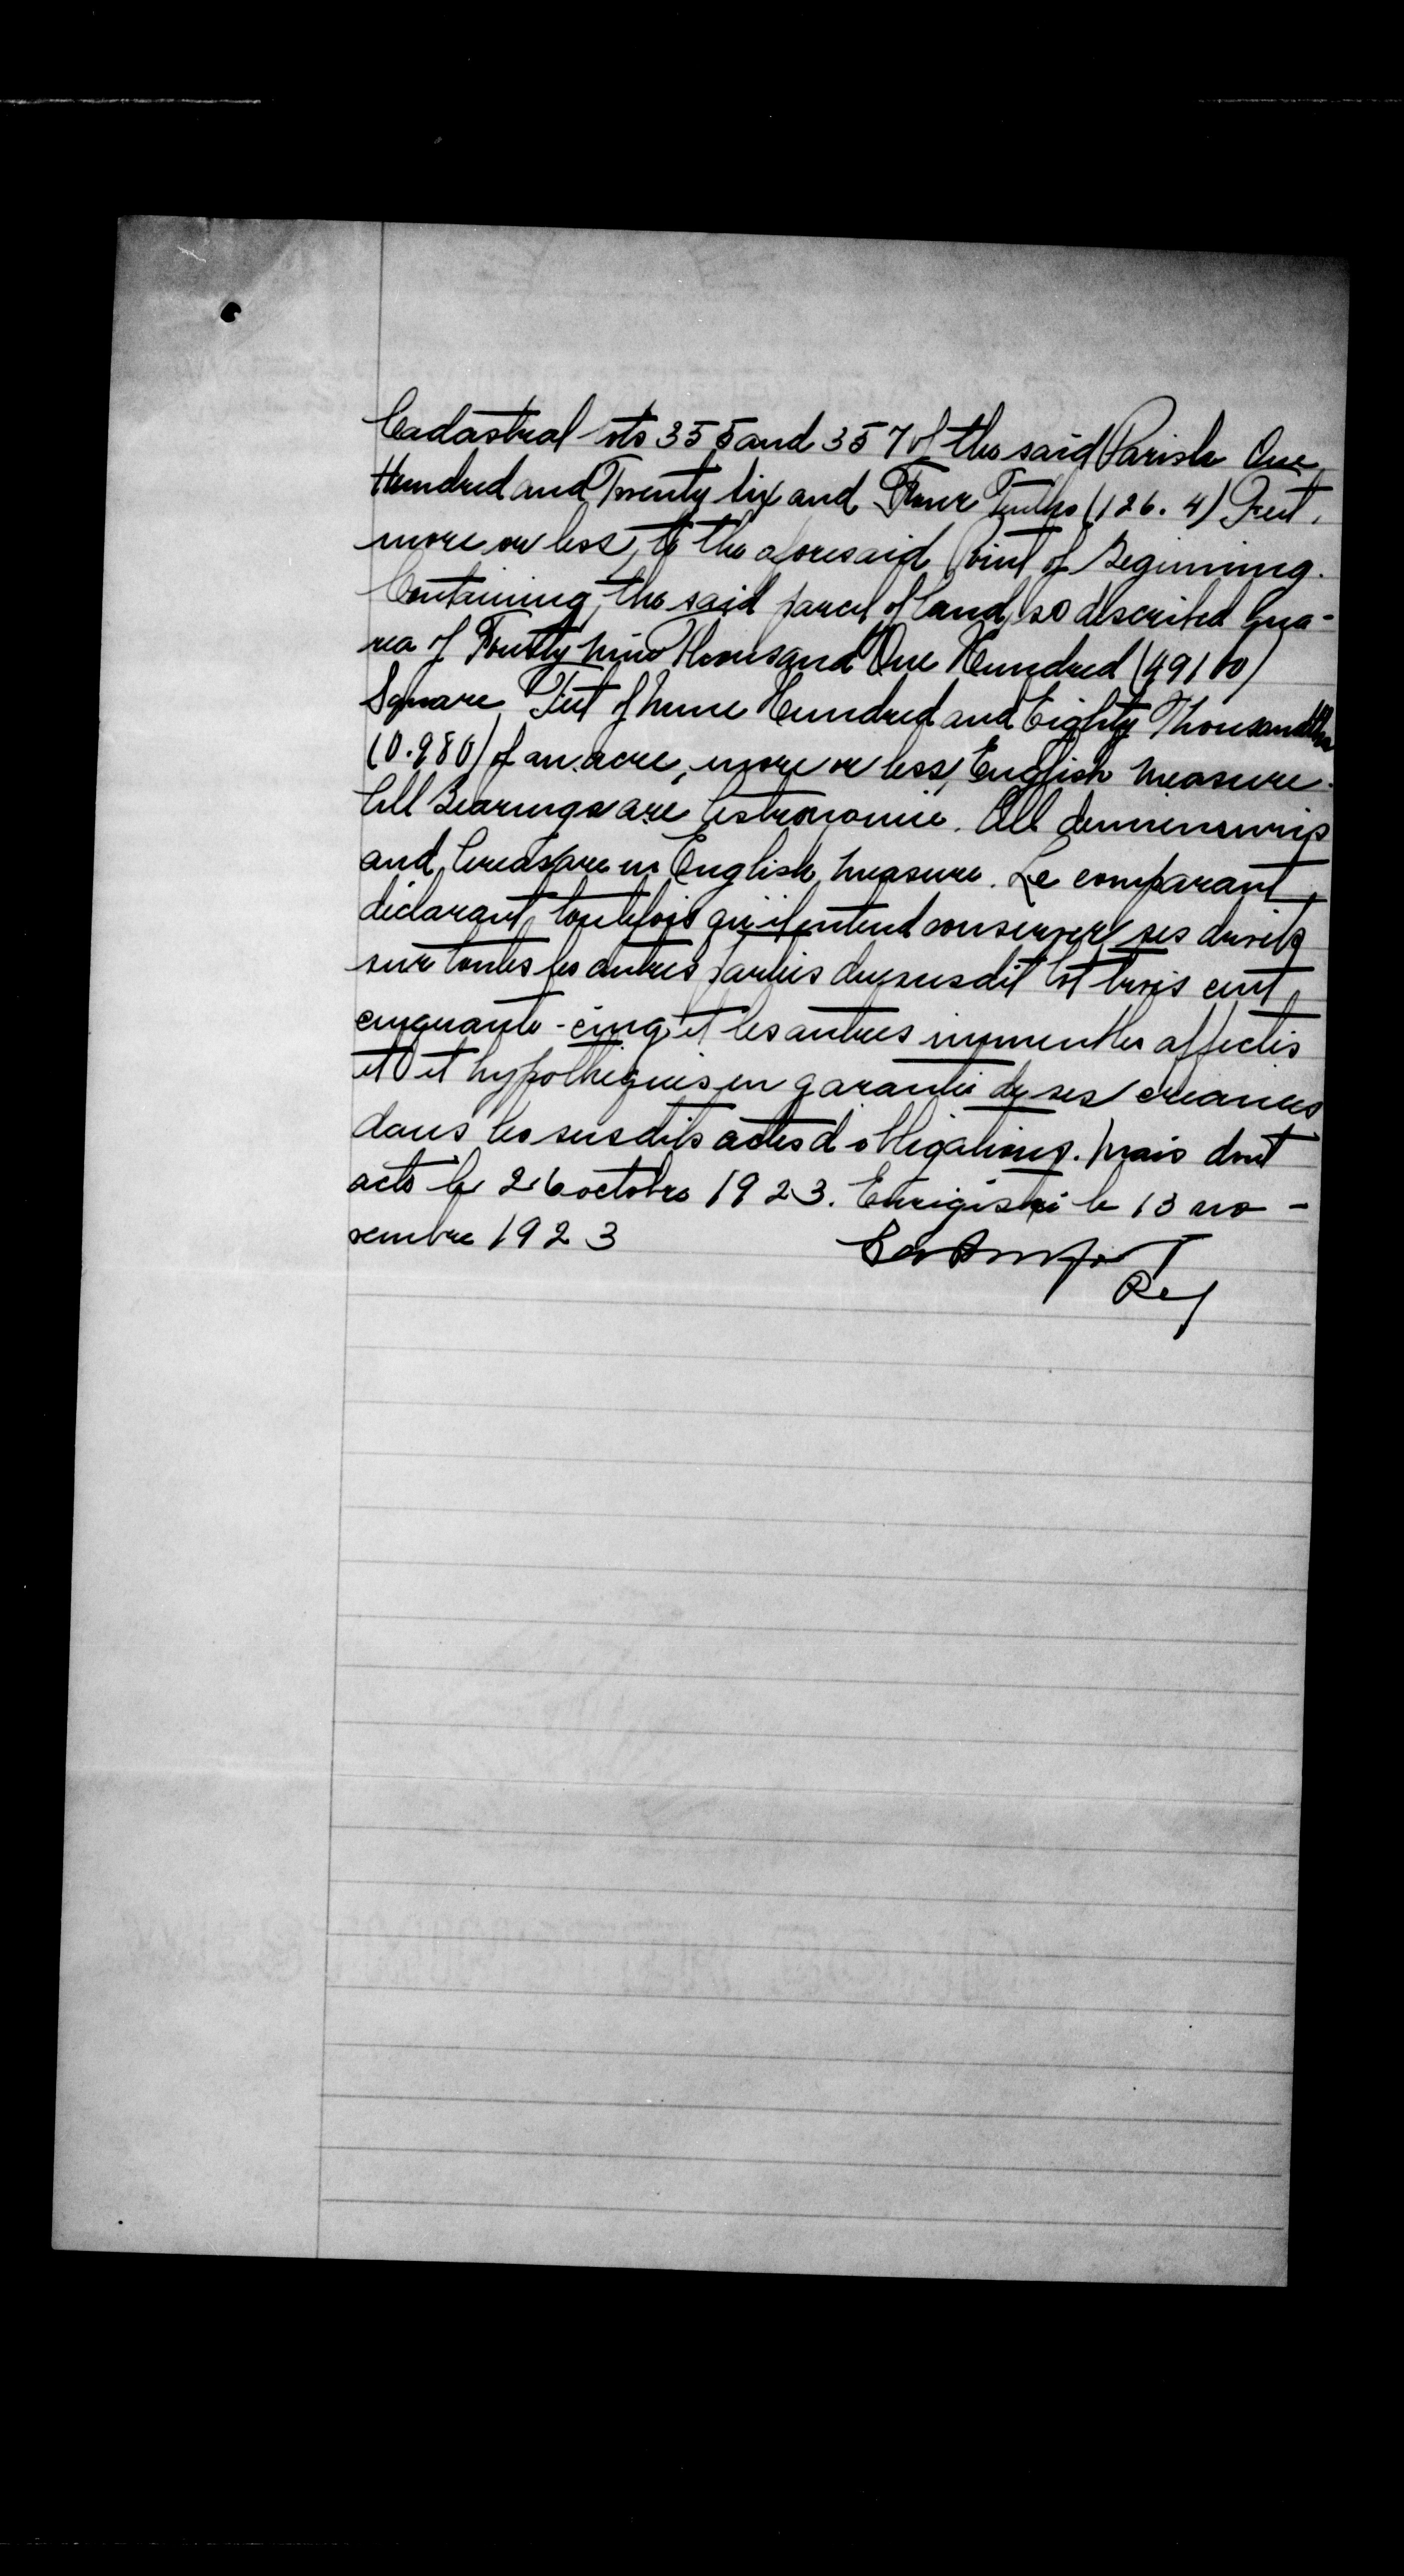 Cadastral lots 355 and 357 of the said Parish One
Hundred and Twenty Six and Four Tenths (126.4) Feet,
more or less, to the aforesaid Point of Beginning.
Containing, the said parcel of land, so described
rea of Fourty nine Thousand One Hundred (49100)
Square Feet of nine Hundred and Eighty Thousandths
(0.980) of an acre, more or less, English measure.
All Bearings are Astronomic. All
and Areas are in English measure. Le comparant
déclarant toutefois qu'il entend conserver ses droits
sur toutes les autres parties du susdit lot trois cent
cinquante-cinq et les autres immeubles affectés
et et hypothéqués en garantie de ses créances
dans les susdits actes d obligations. Mais dont
acte le 26 octobre 1923. Enrigistré le 13 no-
vembre 1923
Reg